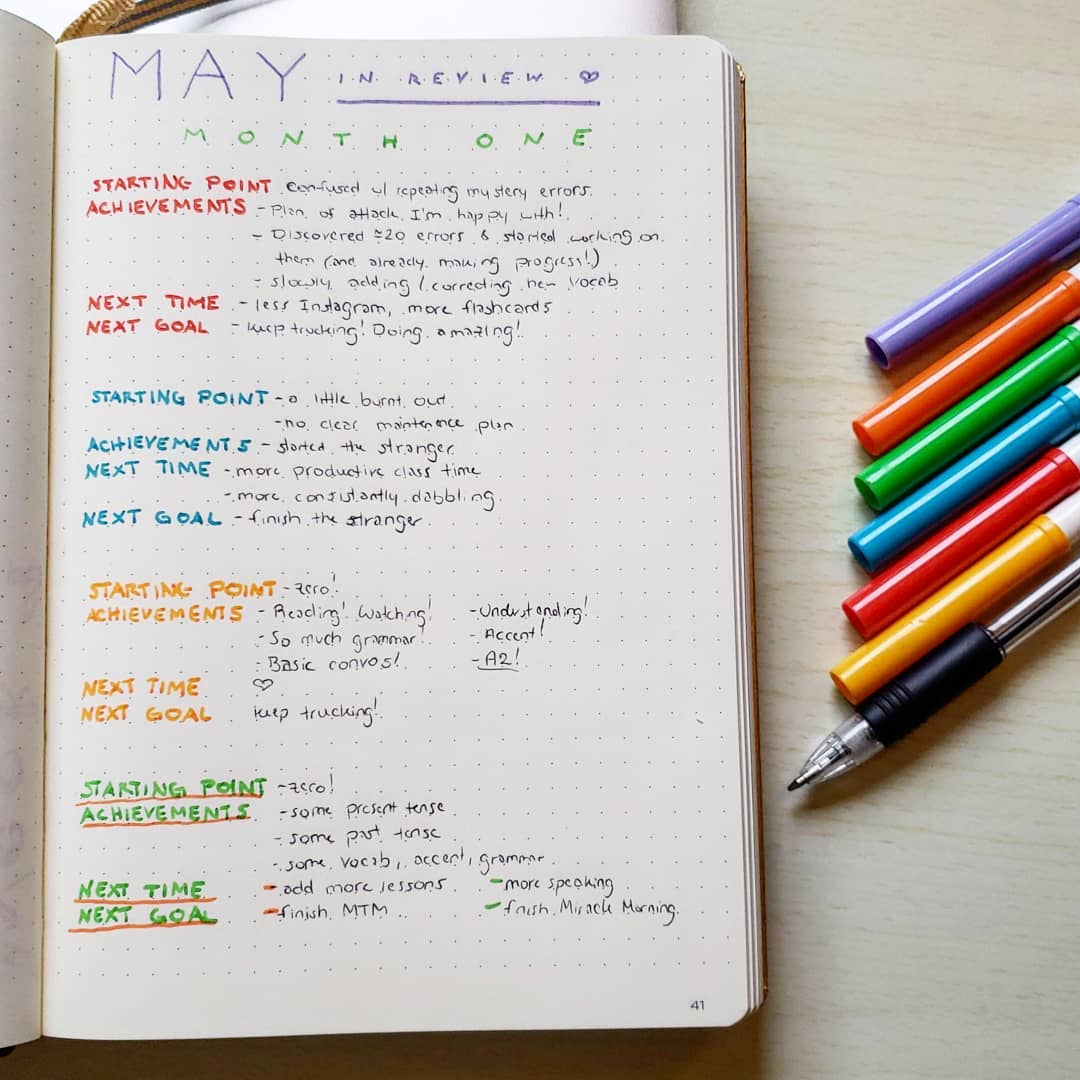 MAY IN REVIEW ♡
MONTH ONE
STARTING POINT confused w/ repeating mystery errors.
ACHIEVEMENTS - Plan of attack I'm happy with!
- Discovered ≈20 errors & started working on
them (and already making progress!)
- slowly adding / correcting new vocab
NEXT TIME - less Instagram, more flashcards
NEXT GOAL - keep trucking! Doing amazing!
STARTING POINT - a little burnt out
- no clear maintenence plan
ACHIEVEMENTS - started the stranger
NEXT TIME - more productive class time
- more consistantly dabbling
NEXT GOAL - finish the stranger
STARTING POINT - zero!
ACHIEVEMENTS - Reading! Watching! - Understanding!
- So much grammar! - Accent!
- Basic convos! - A2!
NEXT TIME ♡
NEXT GOAL keep trucking!
STARTING POINT - zero!
ACHIEVEMENTS - some present tense
- some past tense
- some vocab, accent, grammar
NEXT TIME - add more lessons - more speaking
NEXT GOAL - finish MTM - finish Miracle Morning.
41